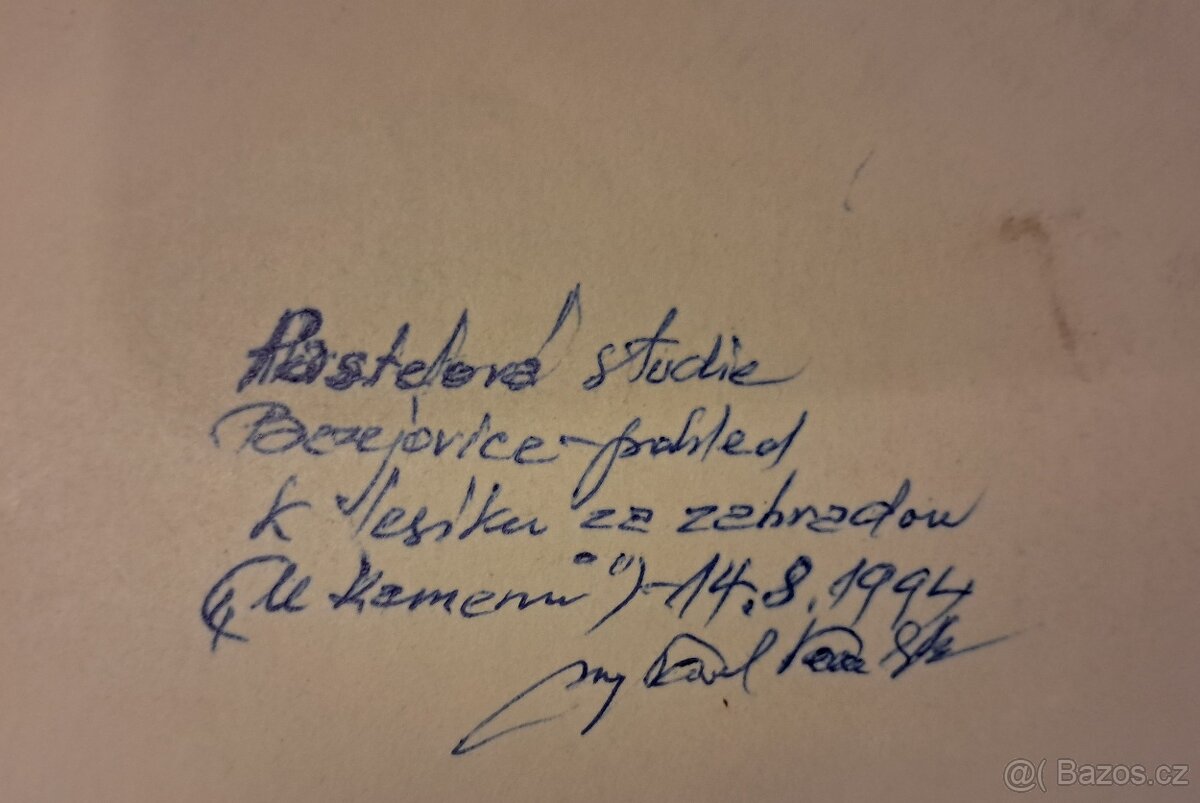 Pastelová studie
Bezejovice - pohled
k lesíku za zahradou
(„U kamenů") - 14.8.1994
Karel
@( Bazos.cz